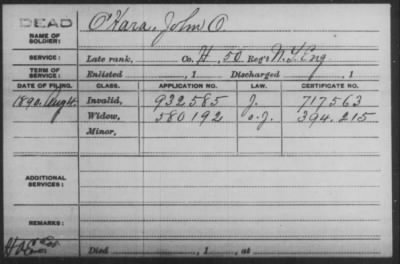 DEAD
NAME OF SOLDIER: O'Hara, John O
SERVICE: Late rank, Co. H, 50 Reg't N.Y. Eng
TERM OF SERVICE: Enlisted , 1 Discharged , 1
DATE OF FILING. CLASS. APPLICATION NO. LAW. CERTIFICATE NO.
1890. Aug Invalid, 932585 J. 717563
Widow, 580192 o.J. 394.215
Minor,
ADDITIONAL SERVICES:
REMARKS:
Died , 1 , at